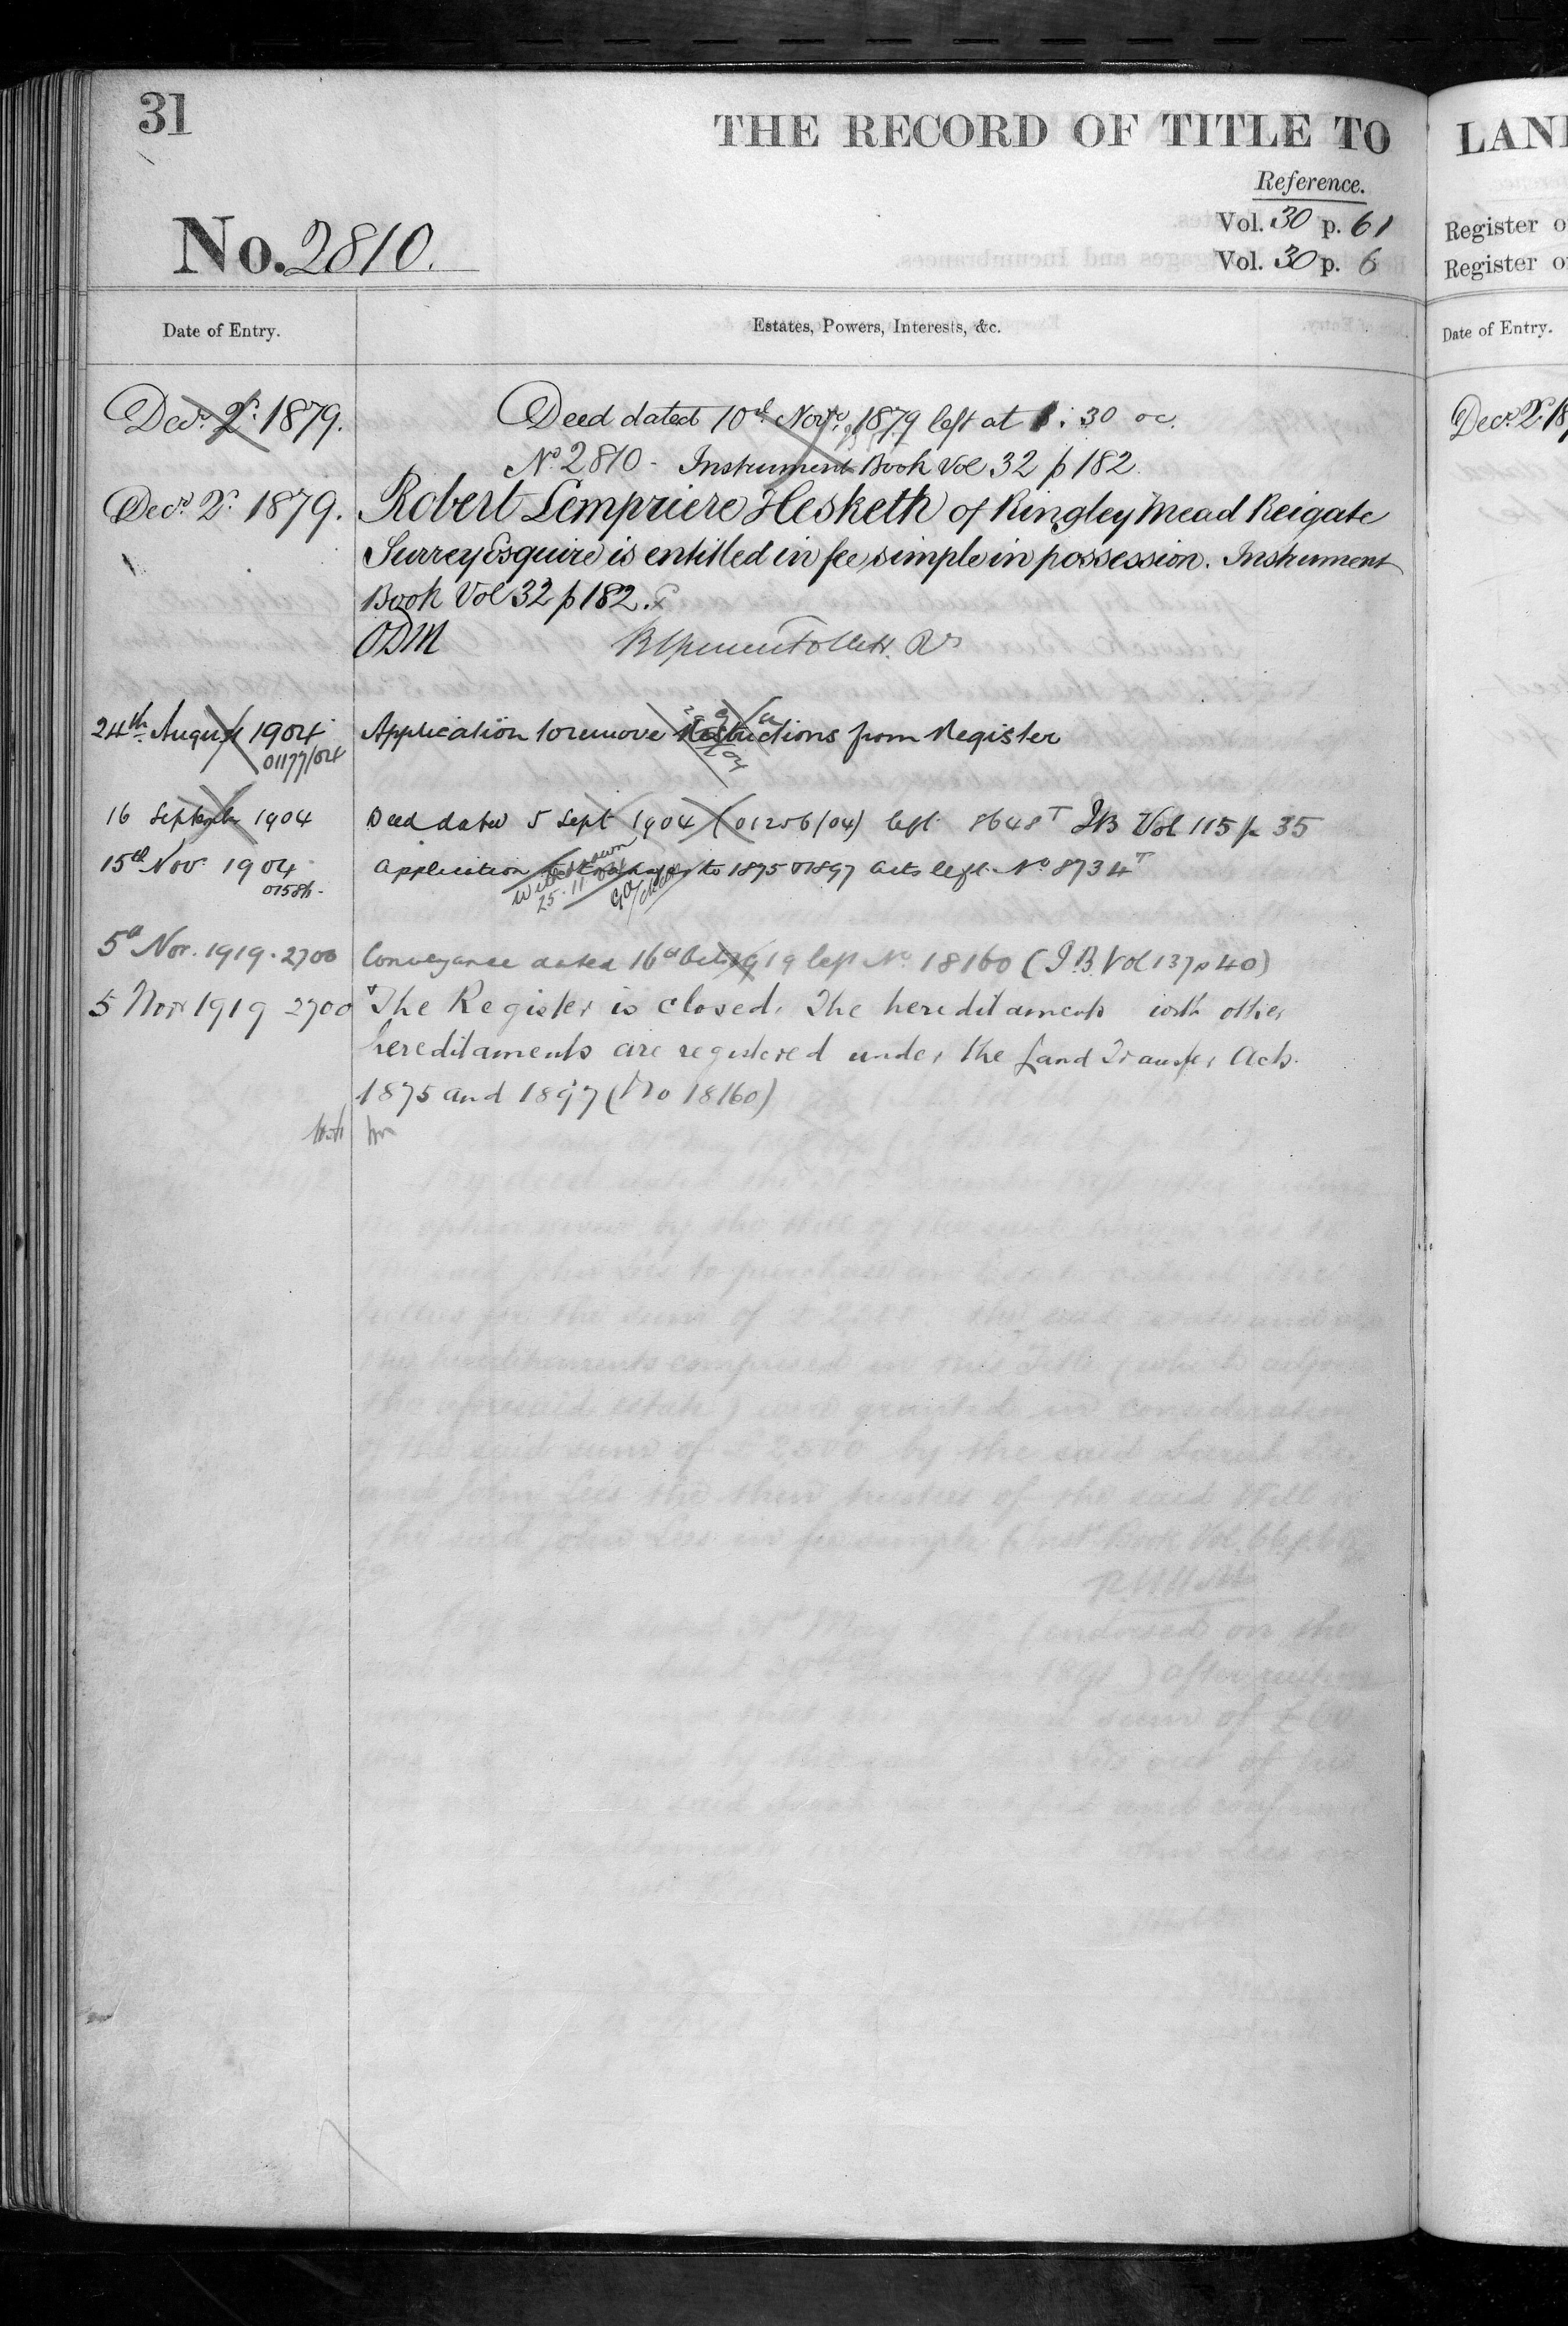 31
THE RECORD OF TITLE TO
LAN
Reference.
Vol. 30 p. 61
Register o
No. 2810.
Vol. 30 p. 6
Register o
Date of Entry.
Estates, Powers, Interests, &c.
Date of Entry.
Decr. 2: 1879.
Deed dated 10th Novr. 1879 left at 1:30 oc.
Decr. 2: 18
No 2810 - Instrument Book Vol 32 p 182
Decr. 2: 1879.
Robert Lempriere Hesketh of Ringley Mead Reigate
Surrey Esquire is entitled in fee simple in possession. Instrument
Book Vol 32 p 182.
ODM
24th August 1904
Application to remove Restrictions from Register
01177/04
16 September 1904
Deed dated 5 Sept 1904 (01256/04) left 8648T IB Vol 115 p 35
15th Nov. 1904
Application to 1875 & 1897 Acts left. No 8734T
Withdrawn
25.11.04
5th Nov. 1919. 2700
Conveyance dated 16th Oct 1919 left No. 18160 (I.B. Vol 137 p 40)
5 Nov 1919 2700
The Register is closed. The hereditaments with other
hereditaments are registered under the Land Transfer Acts.
1875 and 1897 (No 18160)